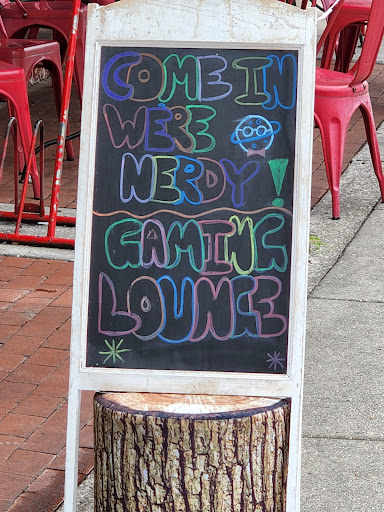 COME IN
WE'RE
NERDY!
GAMING
LOUNGE